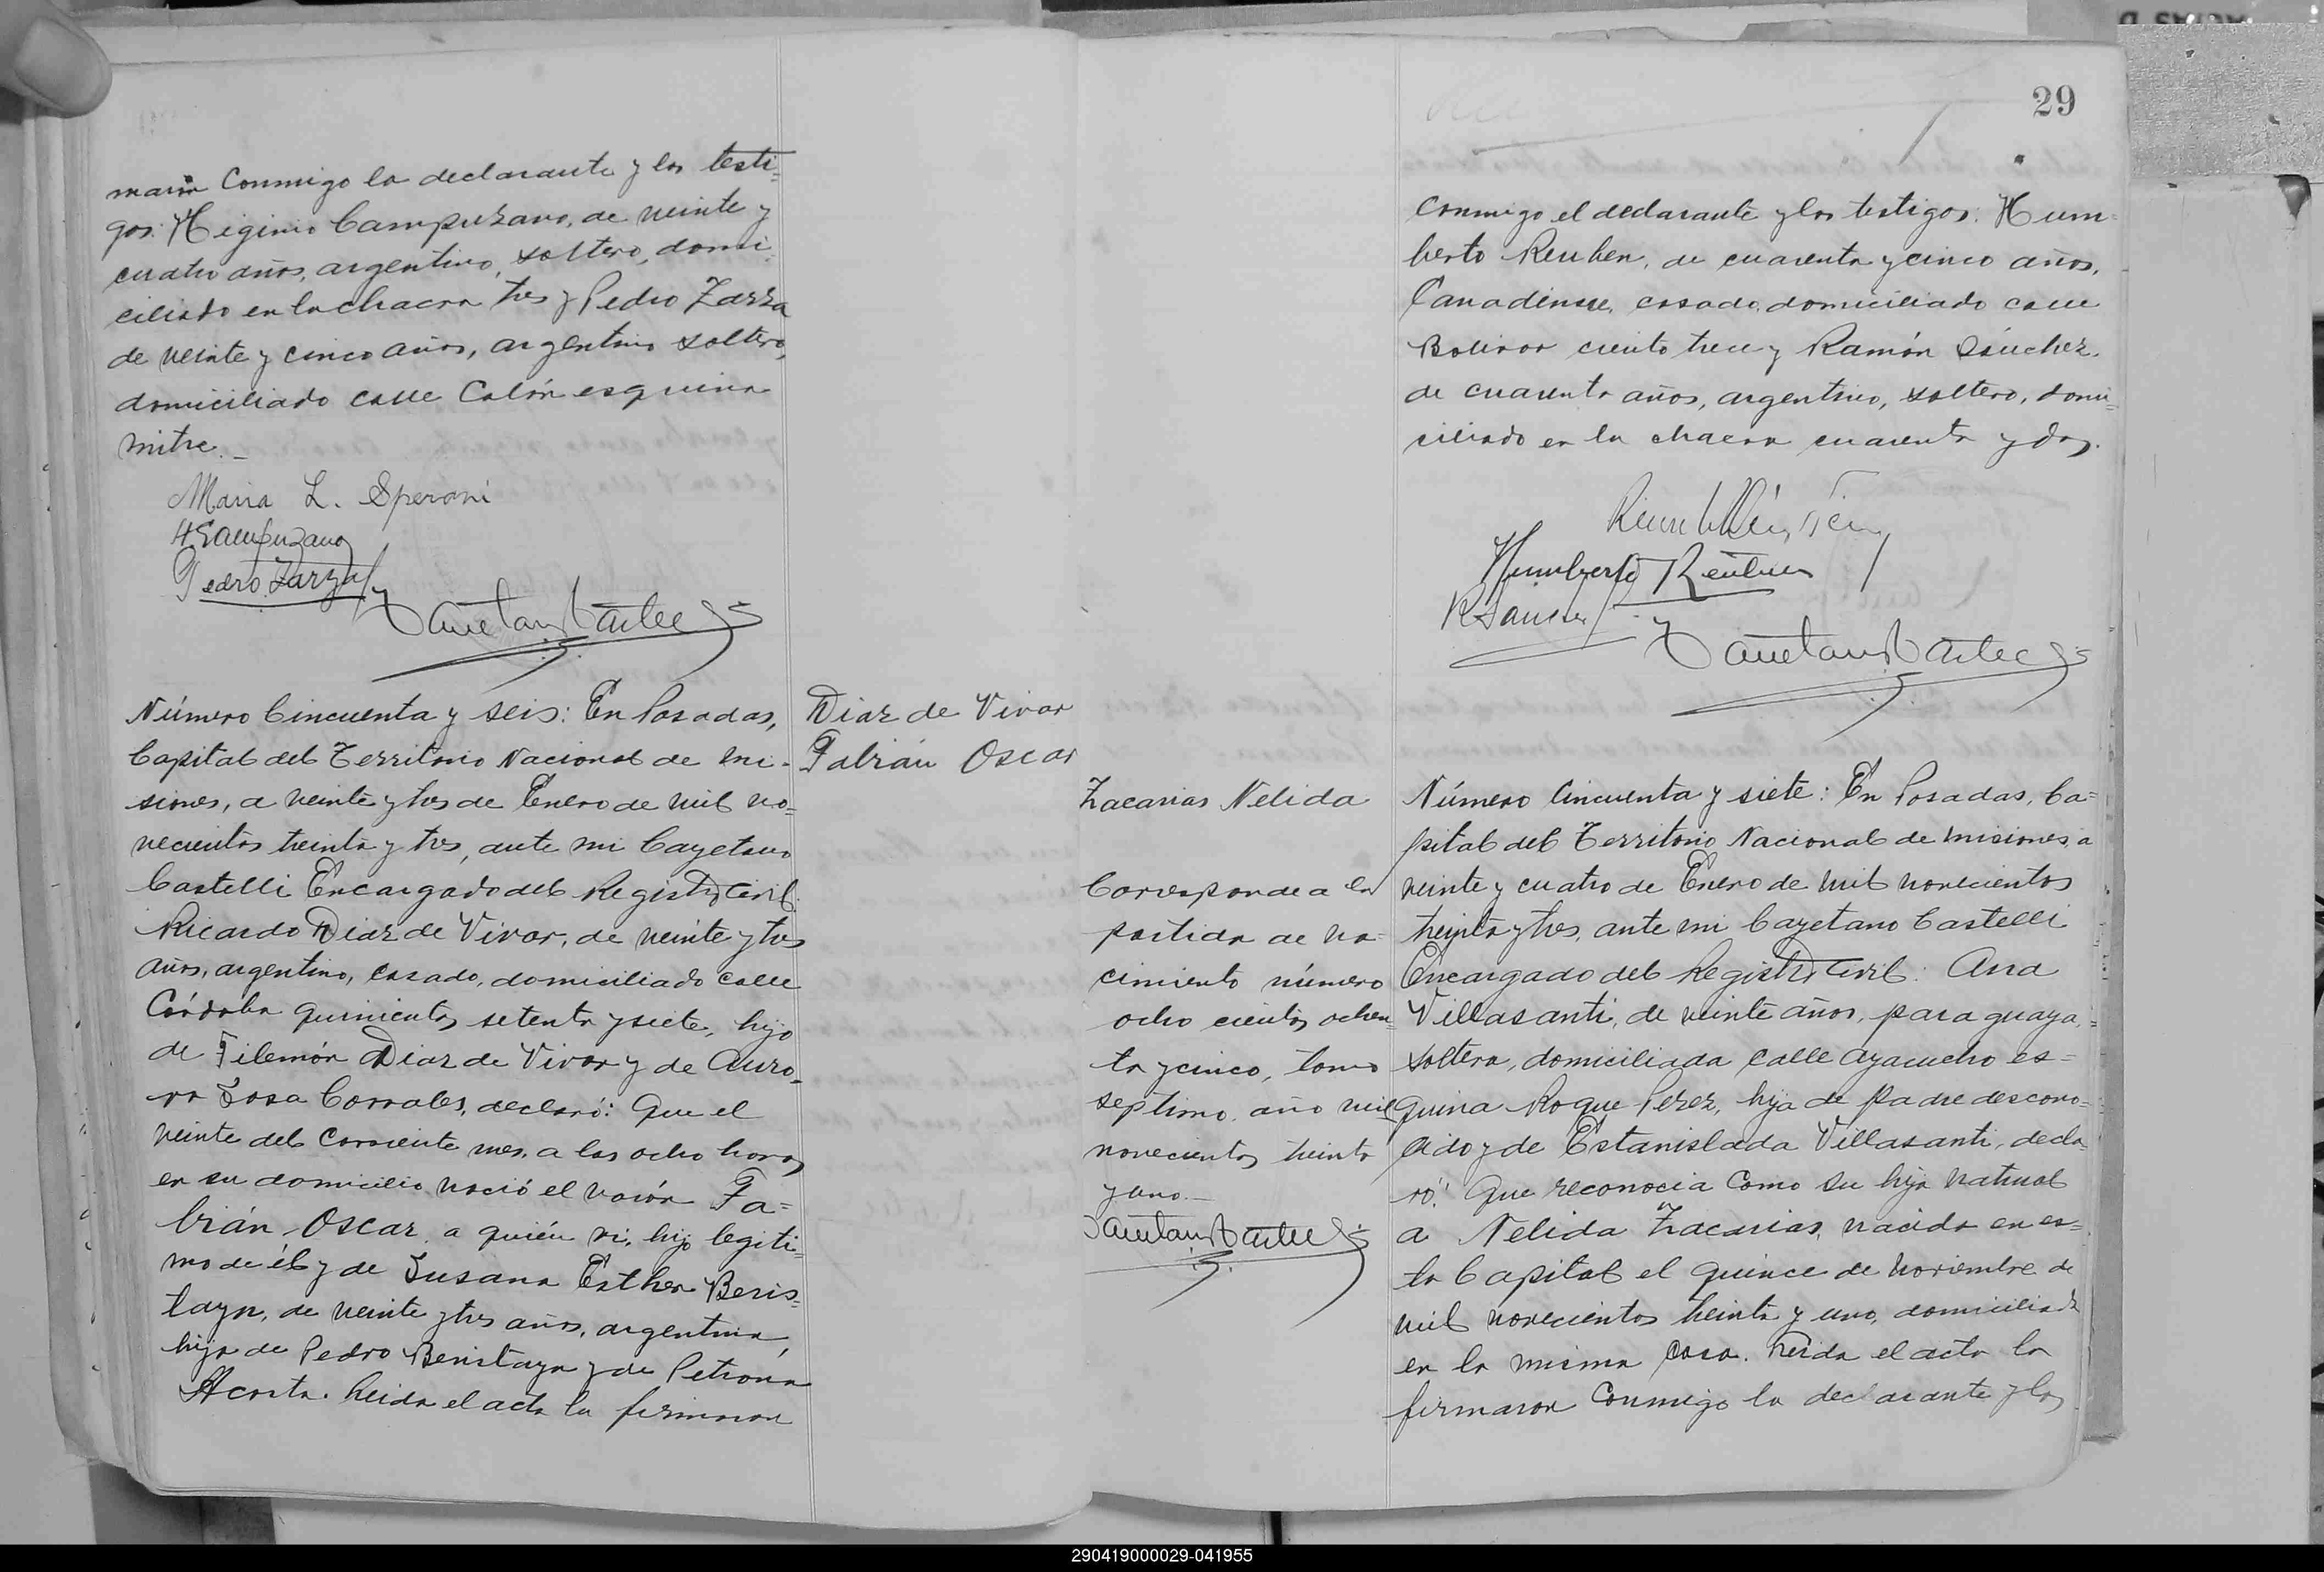 maron conmigo la declarante y los testi=
gos: Higinio Campuzano, de veinte y
cuatro años, argentino, soltero, domi-
ciliado en la chacra tres y Pedro Zarza
de veinte y cinco años, argentino soltero,
domiciliado calle Colón esquina
Mitre.-
Maria L. Speroni
H Campuzano
Pedro Zarza
Número Cincuenta y seis: En Posadas,
Capital del Territorio Nacional de Mi-
siones, a veinte y tres de Enero de mil no=
vecientos treinta y tres, ante mi Cayetano
Castelli Encargado del Registro Civil:
Ricardo Diaz de Vivar, de veinte y tres
años, argentino, casado, domiciliado calle
Córdoba quinientos setenta y siete, hijo
de Filemón Diaz de Vivar y de Auro-
ra Sosa Corrales, declaró: Que el
veinte del corriente mes, a las ocho horas
en su domicilio nació el varón Fa=
brián Oscar, a quién vi, hijo legiti=
mo de él y de Susana Esther Beris=
tayn, de veinte y tres años, argentina,
hija de Pedro Beristayn y de Petrona
Acosta. Leida el acta la firmaron
Diaz de Vivar
Fabrián Oscar
29
conmigo el declarante y los testigos: Hum-
berto Reuben, de cuarenta y cinco años,
Canadinse, casado, domiciliado calle
Bolivar ciento trece y Ramón Sánchez,
de cuarenta años, argentino, soltero, domi=
ciliado en la chacra cuarenta y dos.
Humberto Reuben
Zacarias Nelida
Corresponde a la
partida de na-
cimiento número
ocho cientos ochen=
ta y cinco, tomo
septimo, año mil
novecientos treinta
y uno.-
Número Cincuenta y siete: En Posadas, Ca=
pital del Territorio Nacional de Misiones, a
veinte y cuatro de Enero de mil novecientos
treinta y tres, ante mi Cayetano Castelli
Encargado del Registro Civil: Ana
Villasanti, de veinte años, paraguaya,=
soltera, domiciliada calle Ayacucho es=
quina Roque Perez, hija de padre descono=
cido y de Estanislada Villasanti, decla-
ró: Que reconocia como su hija natural
a Nelida Zacarias, nacida en es=
ta Capital el quince de Noviembre de
mil novecientos treinta y uno, domiciliada
en la misma casa. Leida el acta la
firmaron conmigo la declarante y los
290419000029-041955